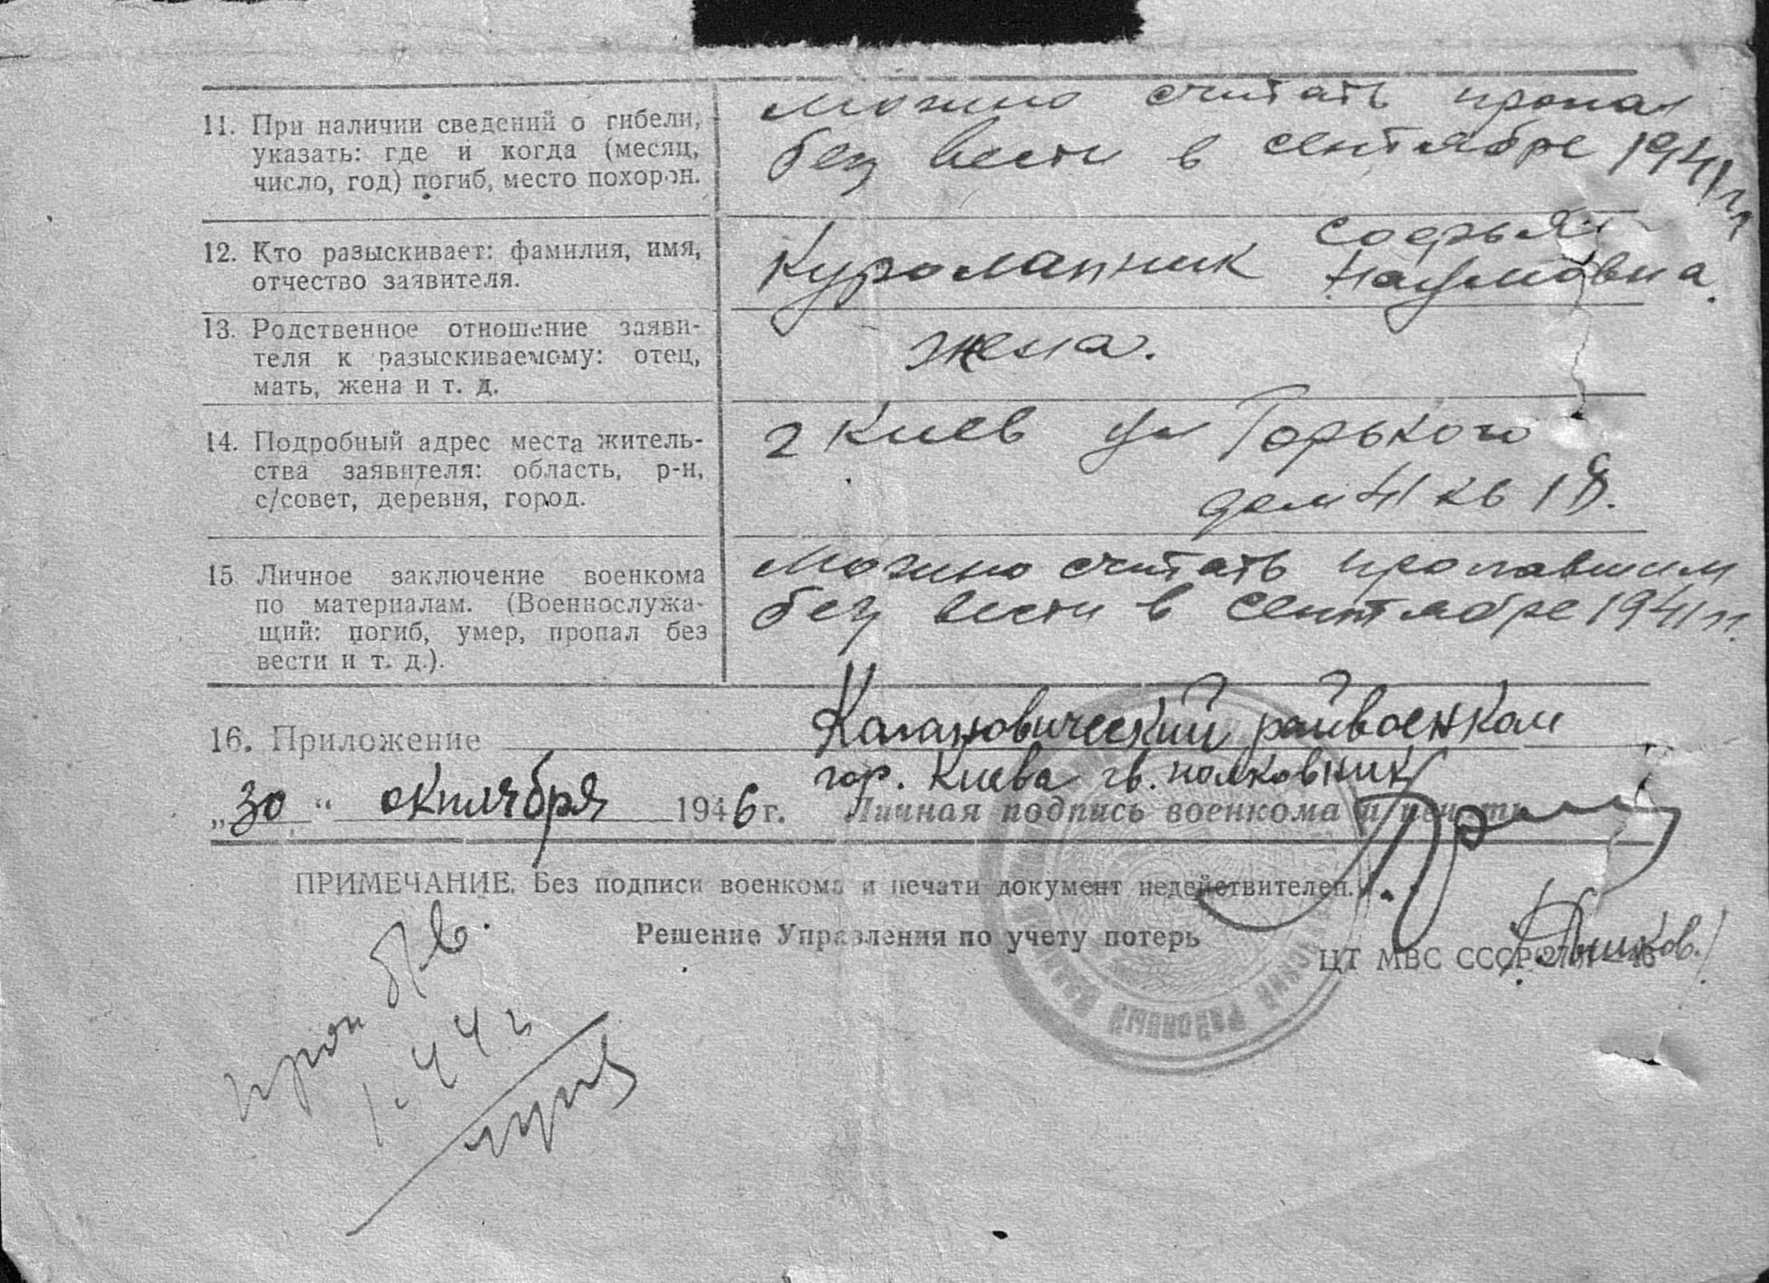 11. При наличии сведений о гибели,
указать: где и когда (месяц,
число, год) погиб, место похорон.
можно считать пропал
без вести в сентябре 1941 г.
12. Кто разыскивает: фамилия, имя,
отчество заявителя.
Куролапник Софья
Наумовна
13. Родственное отношение заяви-
теля к разыскиваемому: отец,
мать, жена и т. д.
жена.
14. Подробный адрес места житель-
ства заявителя: область, р-н,
с/совет, деревня, город.
г Киев ул Горького
дом 41 кв 18.
15. Личное заключение военкома
по материалам. (Военнослужа-
щий: погиб, умер, пропал без
вести и т. д.).
можно считать пропавшим
без вести в сентябре 1941 г.
16. Приложение
Кагановический райвоенком
гор. Киева гв. полковник
„30“ октября 1946 г. Личная подпись военкома и печать
ПРИМЕЧАНИЕ. Без подписи военкома и печати документ недействителен.
Решение Управления по учету потерь
ЦТ МВС СССР
проп б/в.
1.44 г